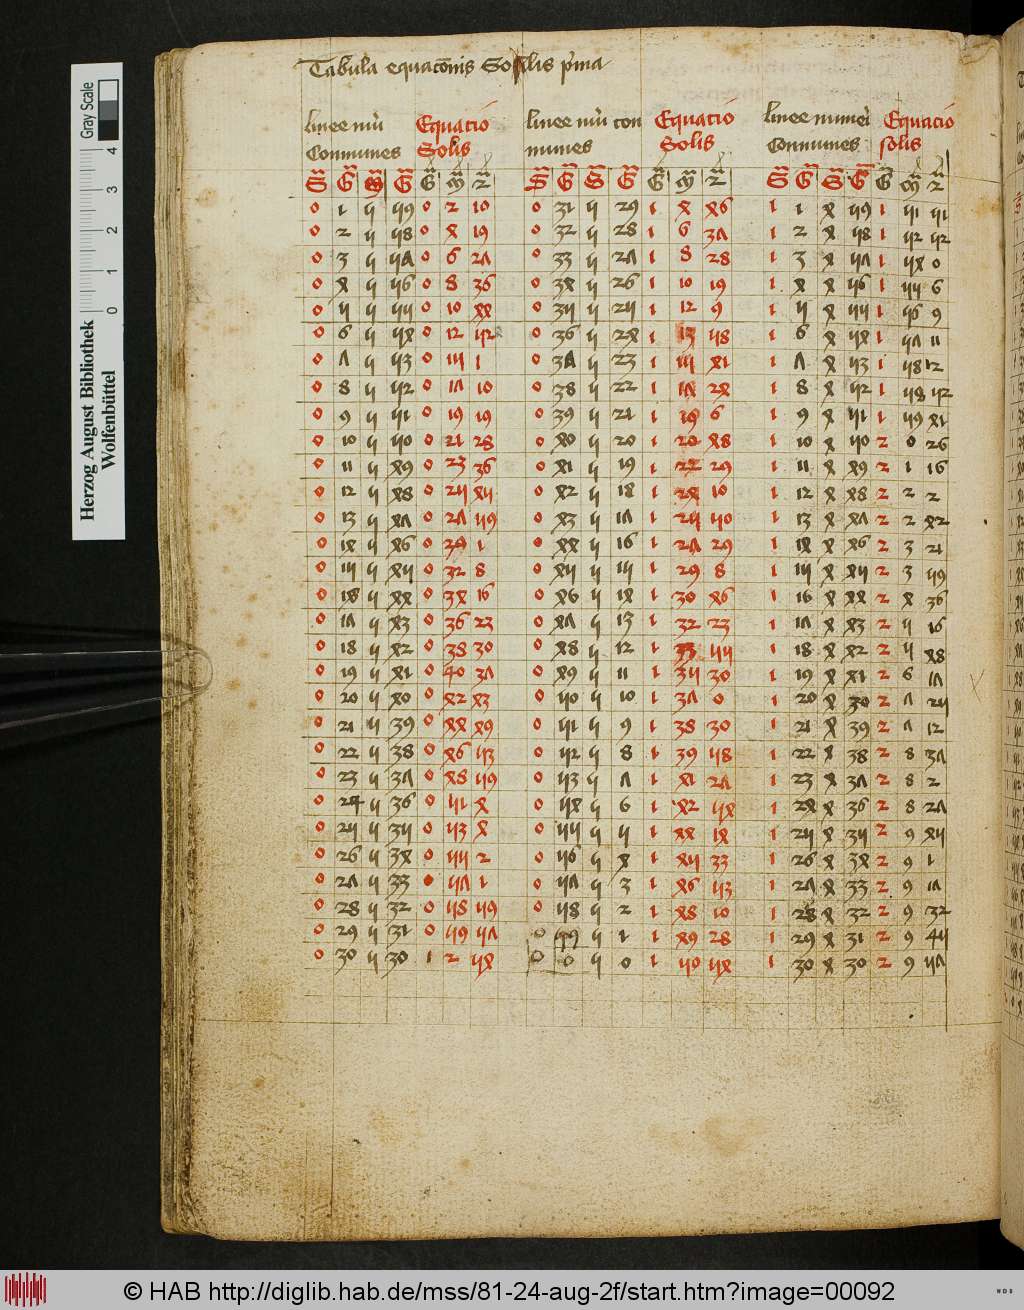 Tabula equacōnis Solis p'ma
linee nūi Communes Equacio Solis linee nūi communes Equacio Solis linee numeri Communes Equacio solis
S G S G G M 2 S G S G G M 2 S G S G G M 2
0 1 5 59 0 2 10 0 31 5 29 1 4 46 1 1 4 59 1 51 51
0 2 5 58 0 4 19 0 32 5 28 1 6 37 1 2 4 58 1 52 52
0 3 5 57 0 6 27 0 33 5 27 1 8 28 1 3 4 57 1 54 0
0 4 5 56 0 8 36 0 34 5 26 1 10 19 1 4 4 56 1 55 6
0 5 5 55 0 10 44 0 35 5 25 1 12 9 1 5 4 55 1 56 9
0 6 5 54 0 12 52 0 36 5 24 1 13 58 1 6 4 54 1 57 11
0 7 5 53 0 15 1 0 37 5 23 1 15 41 1 7 4 53 1 58 12
0 8 5 52 0 17 10 0 38 5 22 1 17 24 1 8 4 52 1 58 52
0 9 5 51 0 19 19 0 39 5 21 1 19 6 1 9 4 51 1 59 41
0 10 5 50 0 21 28 0 40 5 20 1 20 48 1 10 4 50 2 0 26
0 11 5 49 0 23 36 0 41 5 19 1 22 29 1 11 4 49 2 1 16
0 12 5 48 0 25 45 0 42 5 18 1 24 10 1 12 4 48 2 2 2
0 13 5 47 0 27 59 0 43 5 17 1 25 50 1 13 4 47 2 2 42
0 14 5 46 0 29 1 0 44 5 16 1 27 29 1 14 4 46 2 3 21
0 15 5 45 0 32 8 0 45 5 15 1 29 8 1 15 4 45 2 3 59
0 18 5 44 0 34 16 0 46 5 14 1 30 46 1 16 4 44 2 4 36
0 17 5 43 0 36 23 0 47 5 13 1 32 23 1 17 4 43 2 5 16
0 18 5 42 0 38 30 0 48 5 12 1 33 55 1 18 4 42 2 5 48
0 19 5 41 0 40 37 0 49 5 11 1 35 30 1 19 4 41 2 6 17
0 20 5 40 0 42 43 0 50 5 10 1 37 0 1 20 4 30 2 7 25
0 21 5 39 0 44 49 0 51 5 9 1 38 30 1 21 4 39 2 7 12
0 22 5 38 0 46 53 0 52 5 8 1 39 58 1 22 4 38 2 8 37
0 23 5 37 0 48 59 0 53 5 7 1 41 27 1 23 4 37 2 8 2
0 24 5 36 0 51 4 0 54 5 6 1 42 54 1 24 4 36 2 8 27
0 25 5 35 0 53 4 0 55 5 5 1 44 14 1 25 4 35 2 9 45
0 26 5 34 0 55 2 0 56 5 4 1 45 33 1 26 4 34 2 9 1
0 27 5 33 0 57 1 0 57 5 3 1 46 53 1 27 4 33 2 9 17
0 28 5 32 0 58 59 0 58 5 2 1 48 10 1 28 4 32 2 9 32
0 29 5 31 0 59 57 0 59 5 1 1 49 28 1 29 4 31 2 9 45
0 30 5 30 1 2 54 0 0 5 0 1 50 54 1 30 4 30 2 9 57
Herzog August Bibliothek
Wolfenbüttel
0 1 2 3 4 Gray Scale
© HAB http://diglib.hab.de/mss/81-24-aug-2f/start.htm?image=00092
WDB